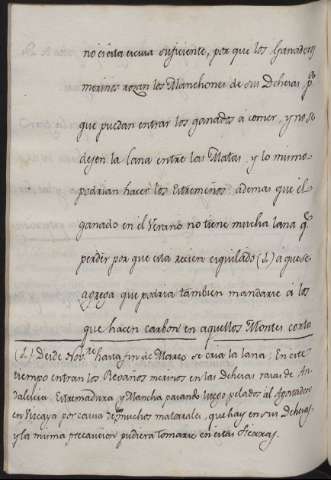 no es esta escusa suficiente, por que los Ganaderos
merinos rozan los Manchones de sus Dehesas p.ª
que puedan entrar los ganados a comer, y no se
dejen la lana entre las Matas, y lo mismo
podrian hacer los Estremeños ademas que el
ganado en el Verano no tiene mucha lana q.e
perder por que esta recien esquilado (1) a que se
agrega que podria tambien mandarse á los
que hacen carbon en aquellos Montes corta
(1.) Desde Nov.re hasta fin de Marzo se cria la lana: En este
tiempo entran los Rebaños merinos en las Dehesas rasas de An-
dalucia, Estremadura, y Mancha pasando luego pelados al Agostadero
en Vizcaya por causa de los muchos matorrales, que hay en sus Dehesas,
y la misma precaucion pudiera tomarse en estas